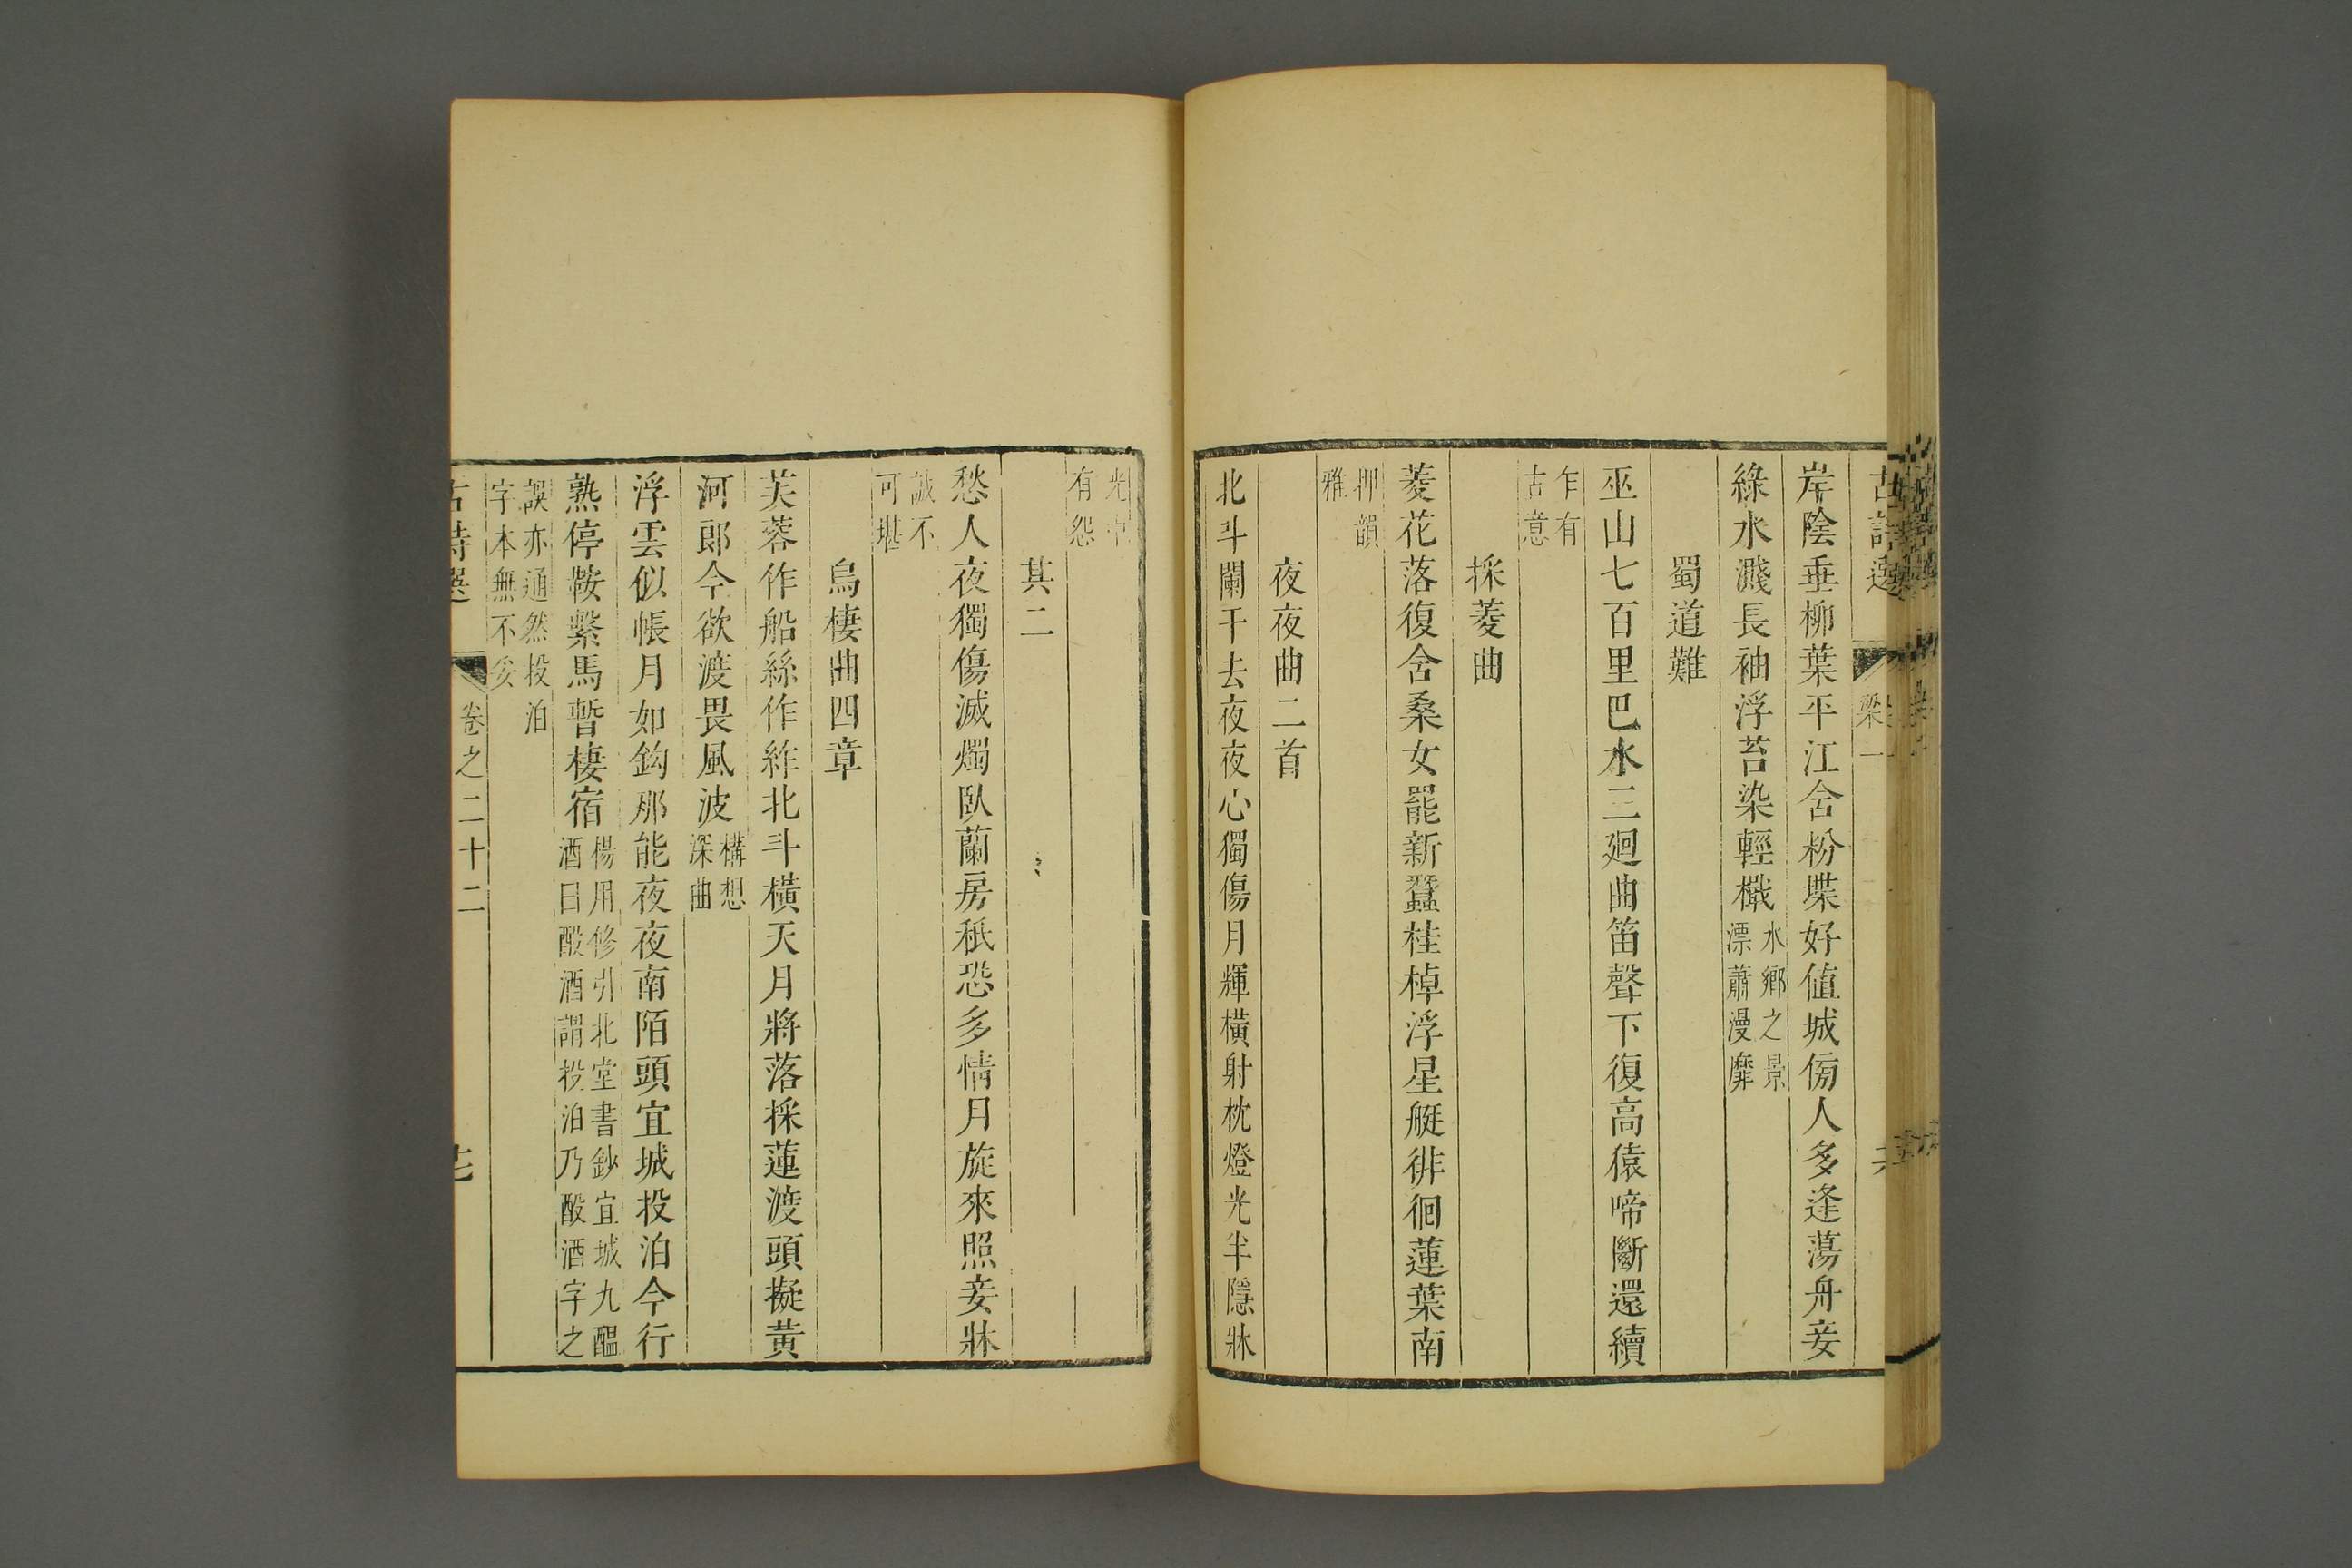 古詩選
梁一
岸陰垂柳葉平江含粉堞好値城傍人多逢蕩舟妾
綠水濺長袖浮苔染輕檝水鄉之景漂蕭漫靡
蜀道難
巫山七百里巴水三迴曲笛聲下復高猿啼斷還續
乍有古意
採菱曲
菱花落復含桑女罷新蠶桂棹浮星艇徘徊蓮葉南
押韻雅
夜夜曲二首
北斗闌干去夜夜心獨傷月輝橫射枕燈光半隱牀
有怨
其二
愁人夜獨傷滅燭臥蘭房秪恐多情月旋來照妾牀
誠不可堪
烏棲曲四章
芙蓉作船絲作䋏北斗橫天月將落採蓮渡頭擬黃
河郎今欲渡畏風波構想深曲
浮雲似帳月如鈎那能夜夜南陌頭宜城投泊今行
熟停鞍繫馬暫棲宿楊用修引北堂書鈔宜城九醞酒曰酘酒謂投泊乃酘酒字之
誤亦通然投泊字本無不妥
古詩選
卷之二十二